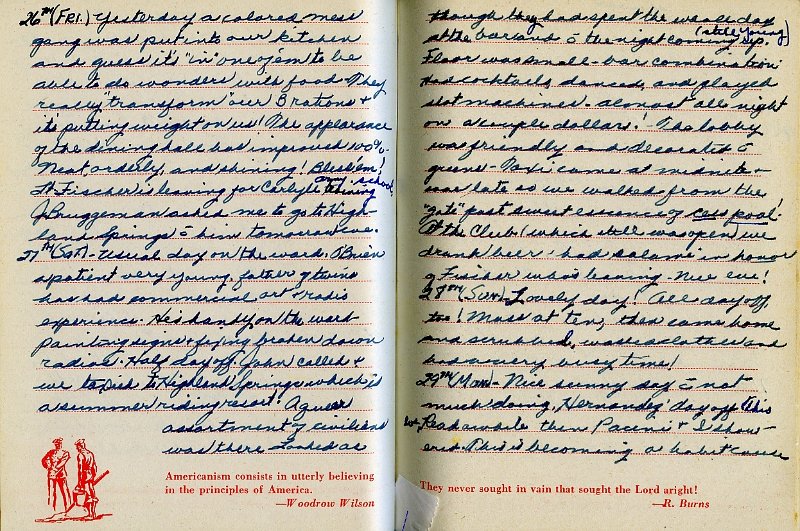 26TH (FRI.) Yesterday a colored mess
gang was put into our kitchen
and guess it's "in" one of 'em to be
able to do wonders with food. They
really "transform" our B rations +
it's putting weight on us! The appearance
of the dining hall has improved 100%.
Neat, orderly, and shining! Bless 'em!
Lt Fischer is leaving for Carlyle army school.
J Bruggeman asked me to go to High-
land Springs c̄ him tomorrow eve.
27TH (SAT) - Usual day on the ward. O'Brien
a patient very young, father of twins
has had commercial art + radio
experience. He is handy on the ward
painting signs + fixing broken down
radios. Half day off. John called +
we to Highland Springs which is
a summer riding resort. A queer
assortment of civilians
was there. Looked as
Americanism consists in utterly believing
in the principles of America.
—Woodrow Wilson
though they had spent the whole day
at the bar and c̄ the night coming up. (still young)
Floor was small - bar combination
Had cocktails, danced, and played
slot machines - almost all night
on a couple dollars! The lobby
was friendly and decorated c̄
green. Taxi came at midnite +
was late so we walked from the
"gate" past sweet essance of cess pool!
At the Club (which still was open) we
drank beer + had salami in honor
of Fischer who is leaving. Nice eve!
28TH (SUN) Lovely day! All day off,
too! Mass at ten, then came home
and scrubbed, washed clothes and
had a very busy time!
29TH (Mon) - Nice sunny day c̄ not
much doing, Hernandez' day off this
Read awhile then Pacini + I show-
ered. This is becoming a habit cause
They never sought in vain that sought the Lord aright!
—R. Burns